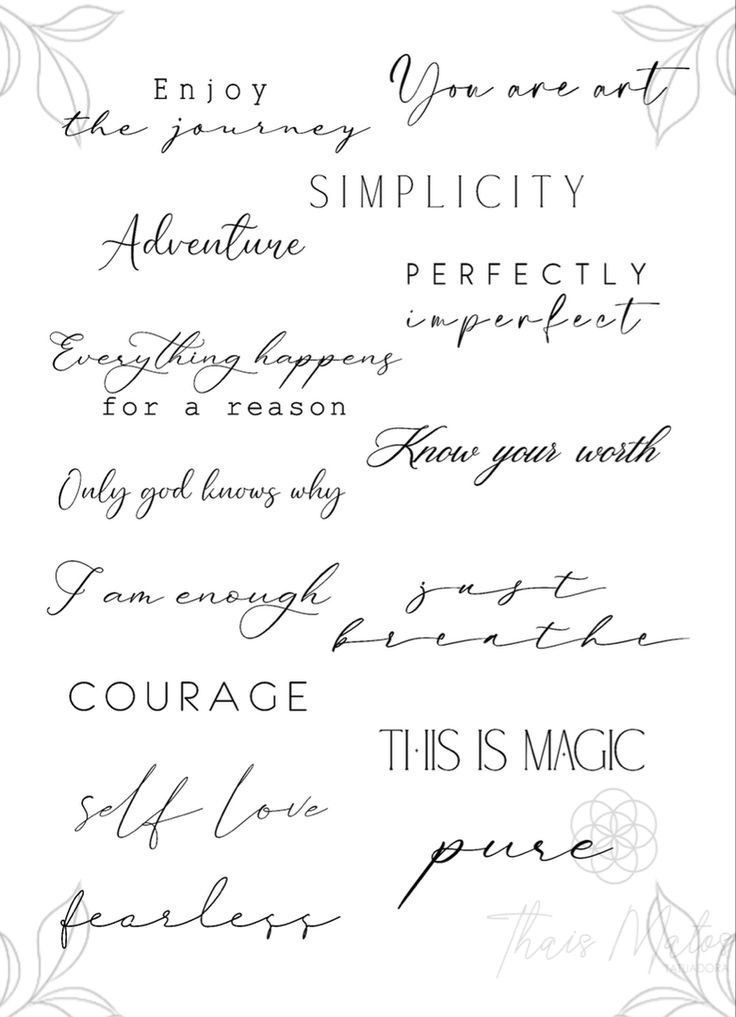 Enjoy
the journey
You are art
SIMPLICITY
Adventure
PERFECTLY
imperfect
Everything happens
for a reason
Know your worth
Only god knows why
I am enough
just
breathe
COURAGE
THIS IS MAGIC
self love
pure
fearless
Thais Matos
TATUADORA